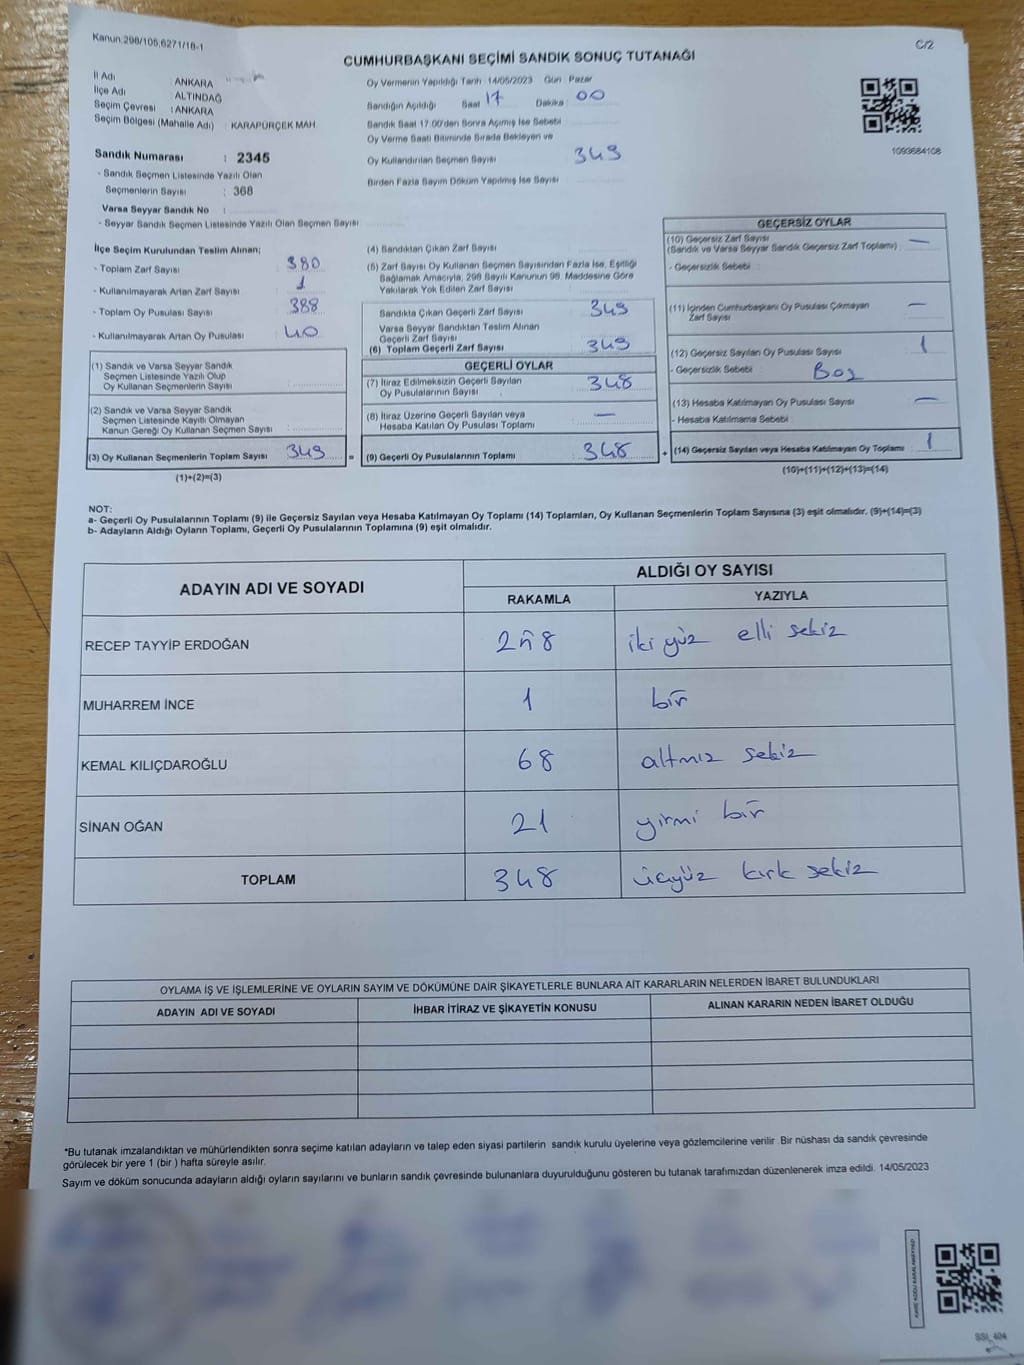 Kanun.298/105,6271/18-1
C/2
CUMHURBAŞKANI SEÇİMİ SANDIK SONUÇ TUTANAĞI
İl Adı : ANKARA
İlçe Adı : ALTINDAĞ
Seçim Çevresi : ANKARA
Seçim Bölgesi (Mahalle Adı) : KARAPÜRÇEK MAH.
Sandık Numarası : 2345
- Sandık Seçmen Listesinde Yazılı Olan
Seçmenlerin Sayısı : 368
Varsa Seyyar Sandık No :
- Seyyar Sandık Seçmen Listesinde Yazılı Olan Seçmen Sayısı
Oy Vermenin Yapıldığı Tarih : 14/05/2023 Gün : Pazar
Sandığın Açıldığı Saat 17 Dakika 00
Sandık Saat 17:00'den Sonra Açımış İse Sebebi
Oy Verme Saati Bitiminde Sırada Bekleyen ve
Oy Kullandırılan Seçmen Sayısı 349
Birden Fazla Sayım Döküm Yapılmış İse Sayısı
1093684108
İlçe Seçim Kurulundan Teslim Alınan;
- Toplam Zarf Sayısı 380
- Kullanılmayarak Artan Zarf Sayısı 1
- Toplam Oy Pusulası Sayısı 388
- Kullanılmayarak Artan Oy Pusulası 40
(1) Sandık ve Varsa Seyyar Sandık
Seçmen Listesinde Yazılı Olup
Oy Kullanan Seçmenlerin Sayısı
(2) Sandık ve Varsa Seyyar Sandık
Seçmen Listesinde Kayıtlı Olmayan
Kanun Gereği Oy Kullanan Seçmen Sayısı
(3) Oy Kullanan Seçmenlerin Toplam Sayısı 349
(1)+(2)=(3)
(4) Sandıktan Çıkan Zarf Sayısı
(5) Zarf Sayısı Oy Kullanan Seçmen Sayısından Fazla İse, Eşitliği
Sağlamak Amacıyla; 298 Sayılı Kanunun 98. Maddesine Göre
Yakılarak Yok Edilen Zarf Sayısı
Sandıkta Çıkan Geçerli Zarf Sayısı 349
Varsa Seyyar Sandıktan Teslim Alınan
Geçerli Zarf Sayısı
(6) Toplam Geçerli Zarf Sayısı 349
GEÇERLİ OYLAR
(7) İtiraz Edilmeksizin Geçerli Sayılan
Oy Pusulalarının Sayısı 348
(8) İtiraz Üzerine Geçerli Sayılan veya
Hesaba Katılan Oy Pusulası Toplamı —
= (9) Geçerli Oy Pusulalarının Toplamı 348
GEÇERSİZ OYLAR
(10) Geçersiz Zarf Sayısı
(Sandık ve Varsa Seyyar Sandık Geçersiz Zarf Toplamı) : —
- Geçersizlik Sebebi :
(11) İçinden Cumhurbaşkanı Oy Pusulası Çıkmayan
Zarf Sayısı —
(12) Geçersiz Sayılan Oy Pusulası Sayısı 1
- Geçersizlik Sebebi Boş
(13) Hesaba Katılmayan Oy Pusulası Sayısı —
- Hesaba Katılmama Sebebi
+ (14) Geçersiz Sayılan veya Hesaba Katılmayan Oy Toplamı 1
(10)+(11)+(12)+(13)=(14)
NOT:
a- Geçerli Oy Pusulalarının Toplamı (9) ile Geçersiz Sayılan veya Hesaba Katılmayan Oy Toplamı (14) Toplamları, Oy Kullanan Seçmenlerin Toplam Sayısına (3) eşit olmalıdır. (9)+(14)=(3)
b- Adayların Aldığı Oyların Toplamı, Geçerli Oy Pusulalarının Toplamına (9) eşit olmalıdır.
ADAYIN ADI VE SOYADI
ALDIĞI OY SAYISI
RAKAMLA YAZIYLA
RECEP TAYYİP ERDOĞAN 258 iki yüz elli sekiz
MUHARREM İNCE 1 bir
KEMAL KILIÇDAROĞLU 68 altmış sekiz
SİNAN OĞAN 21 yirmi bir
TOPLAM 348 üçyüz kırk sekiz
OYLAMA İŞ VE İŞLEMLERİNE VE OYLARIN SAYIM VE DÖKÜMÜNE DAİR ŞİKAYETLERLE BUNLARA AİT KARARLARIN NELERDEN İBARET BULUNDUKLARI
ADAYIN ADI VE SOYADI İHBAR İTİRAZ VE ŞİKAYETİN KONUSU ALINAN KARARIN NEDEN İBARET OLDUĞU
*Bu tutanak imzalandıktan ve mühürlendikten sonra seçime katılan adayların ve talep eden siyasi partilerin sandık kurulu üyelerine veya gözlemcilerine verilir. Bir nüshası da sandık çevresinde
görülecek bir yere 1 (bir ) hafta süreyle asılır.
Sayım ve döküm sonucunda adayların aldığı oyların sayılarını ve bunların sandık çevresinde bulunanlara duyurulduğunu gösteren bu tutanak tarafımızdan düzenlenerek imza edildi. 14/05/2023
KARE KODU KARALAMAYINIZ!
SSI_404